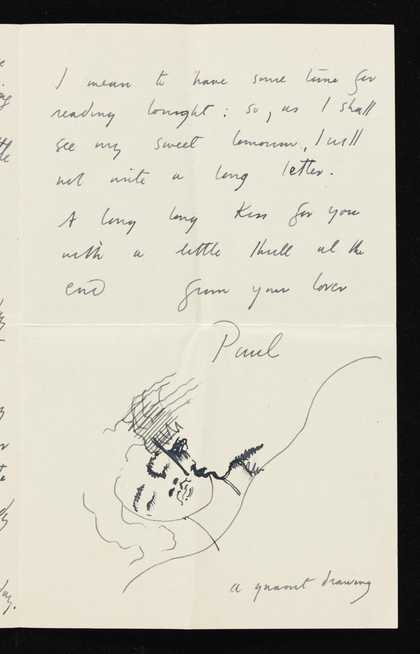 I mean to have some time for
reading tonight: so, as I shall
see my sweet tomorrow, I will
not write a long letter.
A long long kiss for you
with a little thrill at the
end from your lover
Paul
a quaint drawing